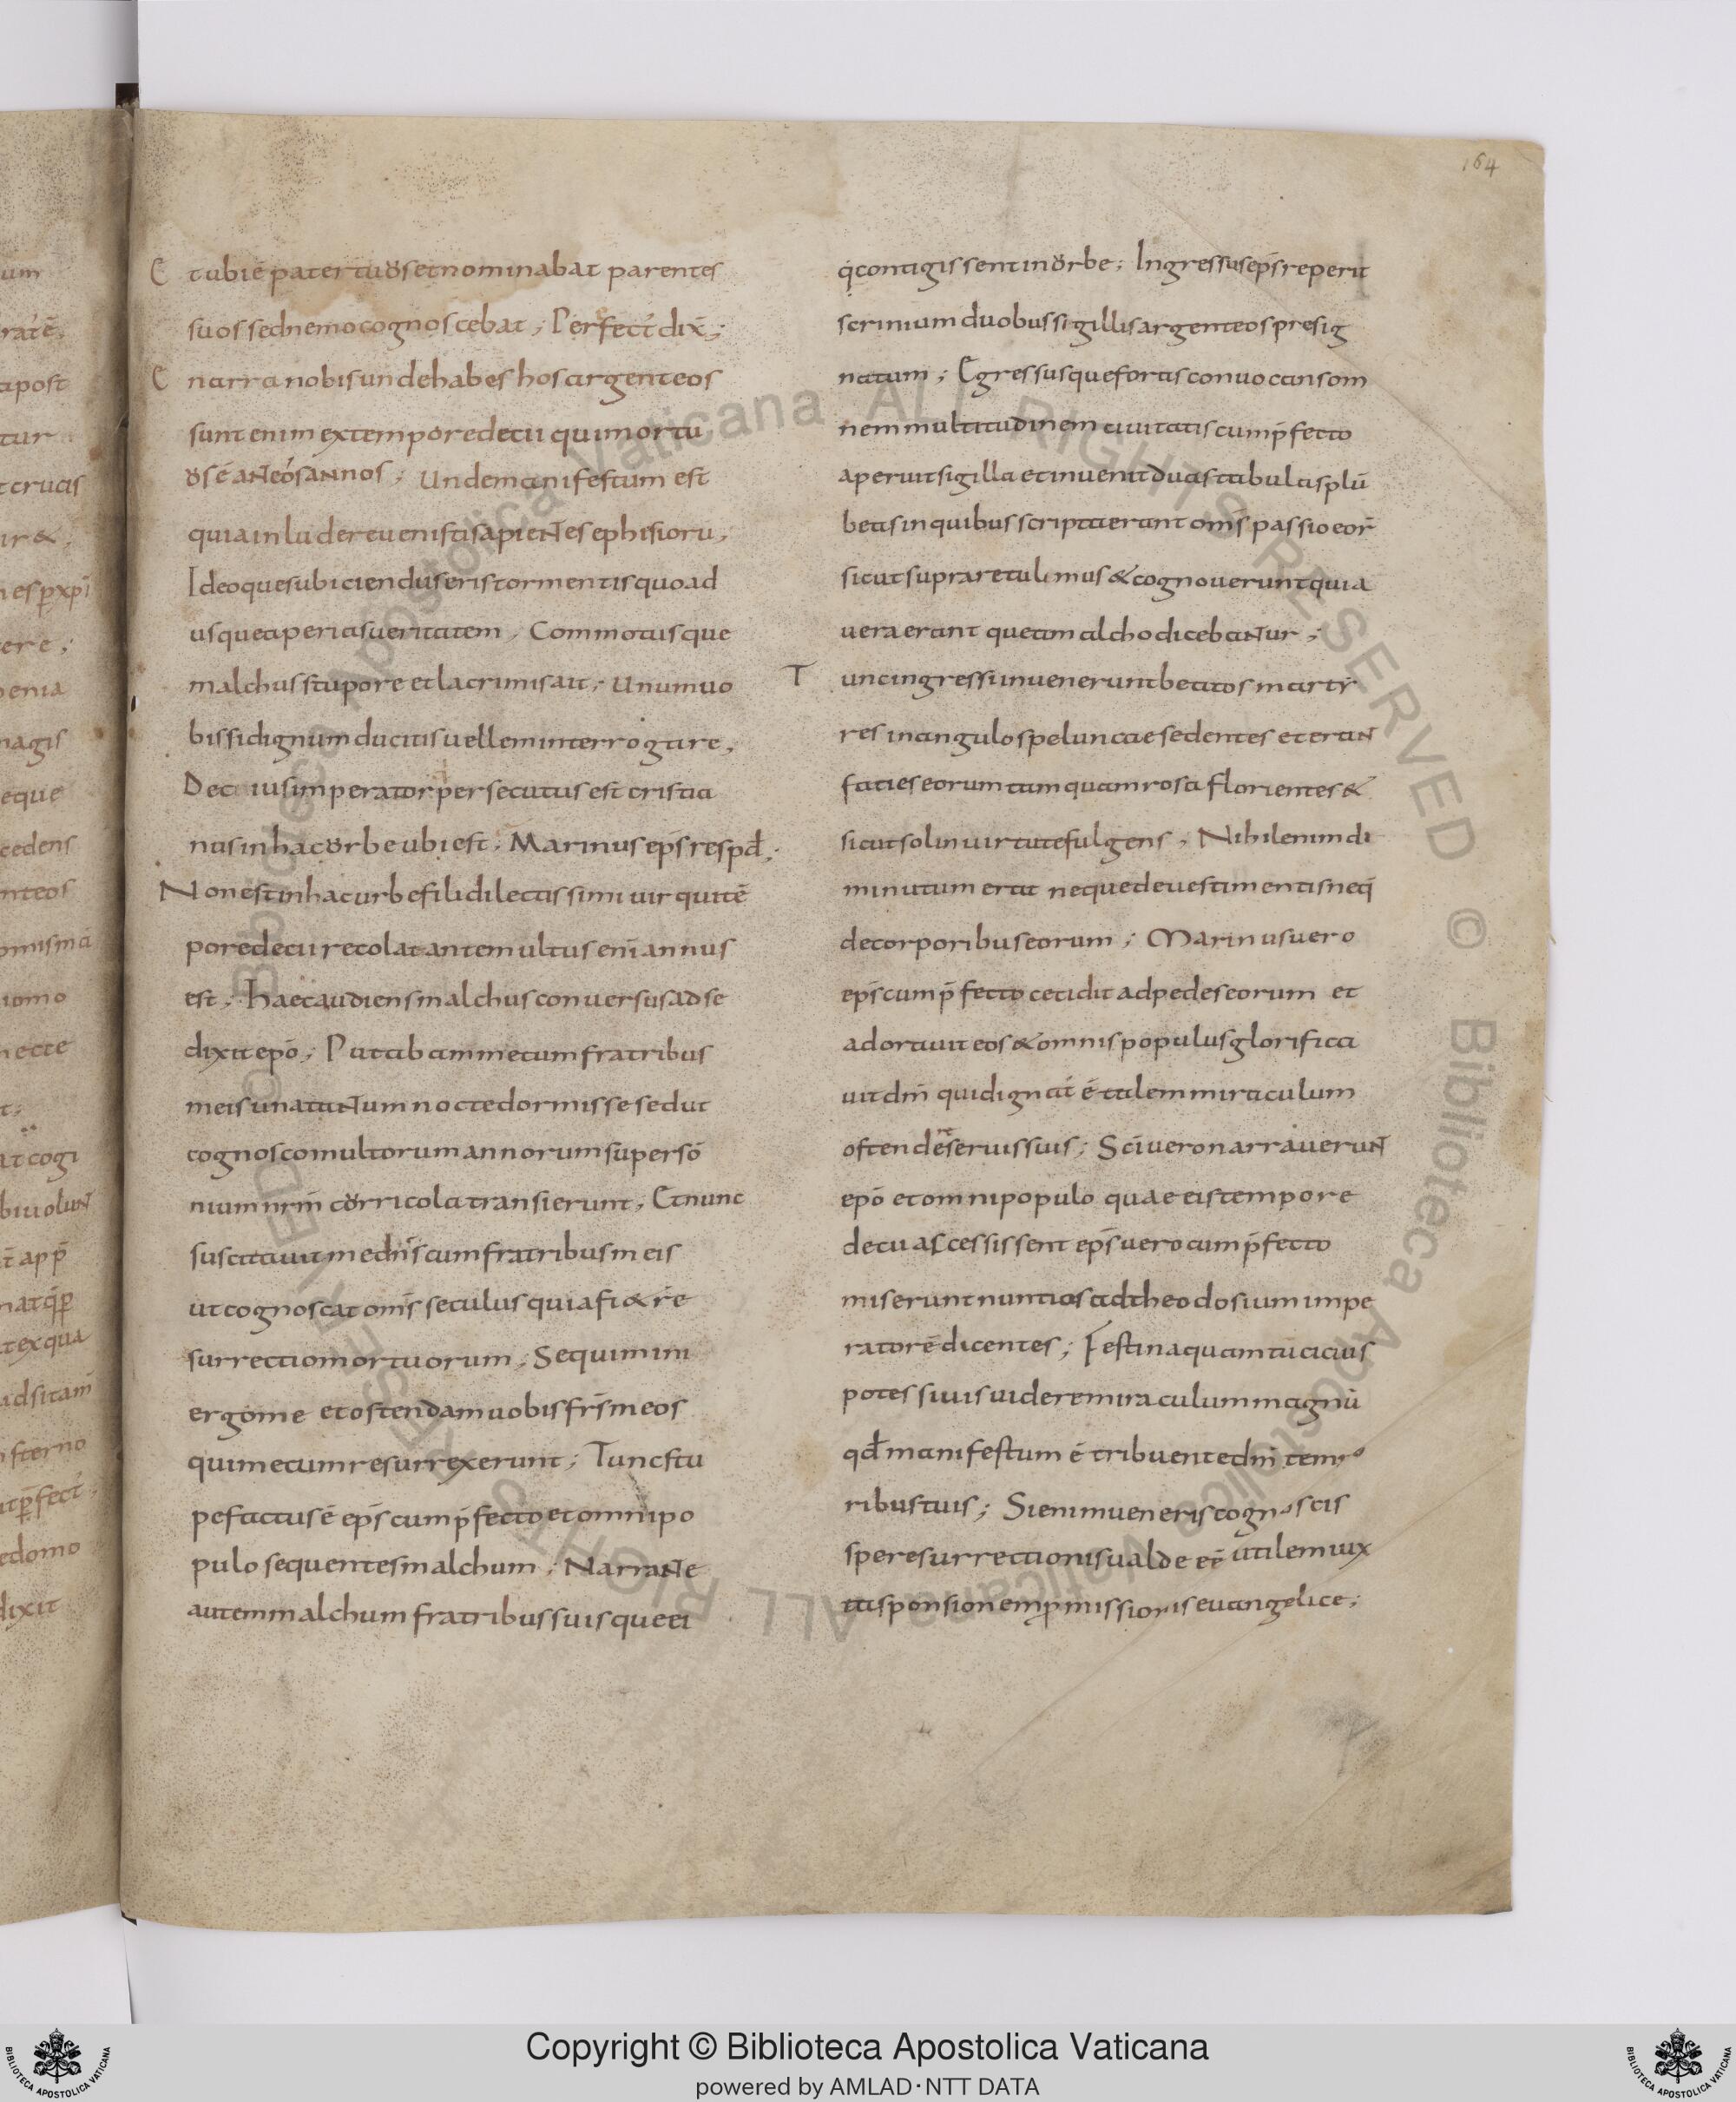 164
Et ubi ē pater tuus et nominabat parentes
suos sed nemo cognoscebat; Perfect' dix̄;
Enarra nobis unde habes hos argenteos
sunt enim ex tempore decii qui mortu
us ē anteos annos; Unde manifestum est
quia inludere uenisti sapientes ephisioru,
Ideoque subiciendus eris tormentis quoad
usque aperias ueritatem, Commotusque
malchus stupore et lacrimis ait; Unum uo
bis si dignum ducitis uellem interrogare,
Decius imperator persecutus est cristia
nus in hac urbe ubi est; Marinus ep̄s respd̄;
Non est in hac urbe fili dilectissimi uir qui tē
pore decii recolat ante multus eni annus
est; Haec audiens malchus conuersus ad se
dixit epō; Putabam mecum fratribus
meis una tantum nocte dormisse sed ut
cognosco multorum annorum super sō
nium nrm̄ curricola transierunt, Et nunc
suscitauit me dn̄s cum fratribus meis
ut cognoscat om̄s seculus quia fi& re
surrectio mortuorum; Sequimini
ergo me et ostendam uobis fr̄s meos
qui mecum resurrexerunt; Tunc stu
pefactus ē ep̄s cum p̄fecto et omni po
pulo sequentes malchum; Narrante
autem malchum fratribus suis que ei
q̇ contigissent in urbe; Ingressus ep̄s reperit
scrinium duobus sigillis argenteos presig
natum; Egressusque foras conuocans om
nem multitudinem ciuitatis cum p̄fecto
aperuit sigilla et inuenit duas tabulas plū
beas in quibus scripta erant om̄s passio eor̄
sicut supra retulimus & cognouerunt quia
uera erant que a malcho dicebantur;
Tunc ingressi inuenerunt beatos marty
res in angulo speluncae sedentes et erant
facies eorum tamquam rosa florientes &
sicut sol in uirtute fulgens, Nihil enim di
minutum erat neque de uestimentis neq̄
de corporibus eorum; Marinus uero
ep̄s cum p̄fecto cecidit ad pedes eorum et
adorauit eos & omnis populus glorifica
uit dm̄ qui dignat' ē talem miraculum
ostendere seruis suis; Sc̄i uero narrauerunt
epō et omni populo quae eis tempore
decii accessissent ep̄s uero cum p̄fecto
miserunt nuntios ad theodosium impe
ratorē dicentes; Festina quamtum cicius
potes si uis uidere miraculum magnū
qd̄ manifestum ē tribuente dn̄o tempo
ribus tuis; Si enim ueneris cognoscis
spe resurrectionis ualde eē utilem iux
ta sponsionem p̄missionis euangelice;
Copyright © Biblioteca Apostolica Vaticana
powered by AMLAD·NTT DATA